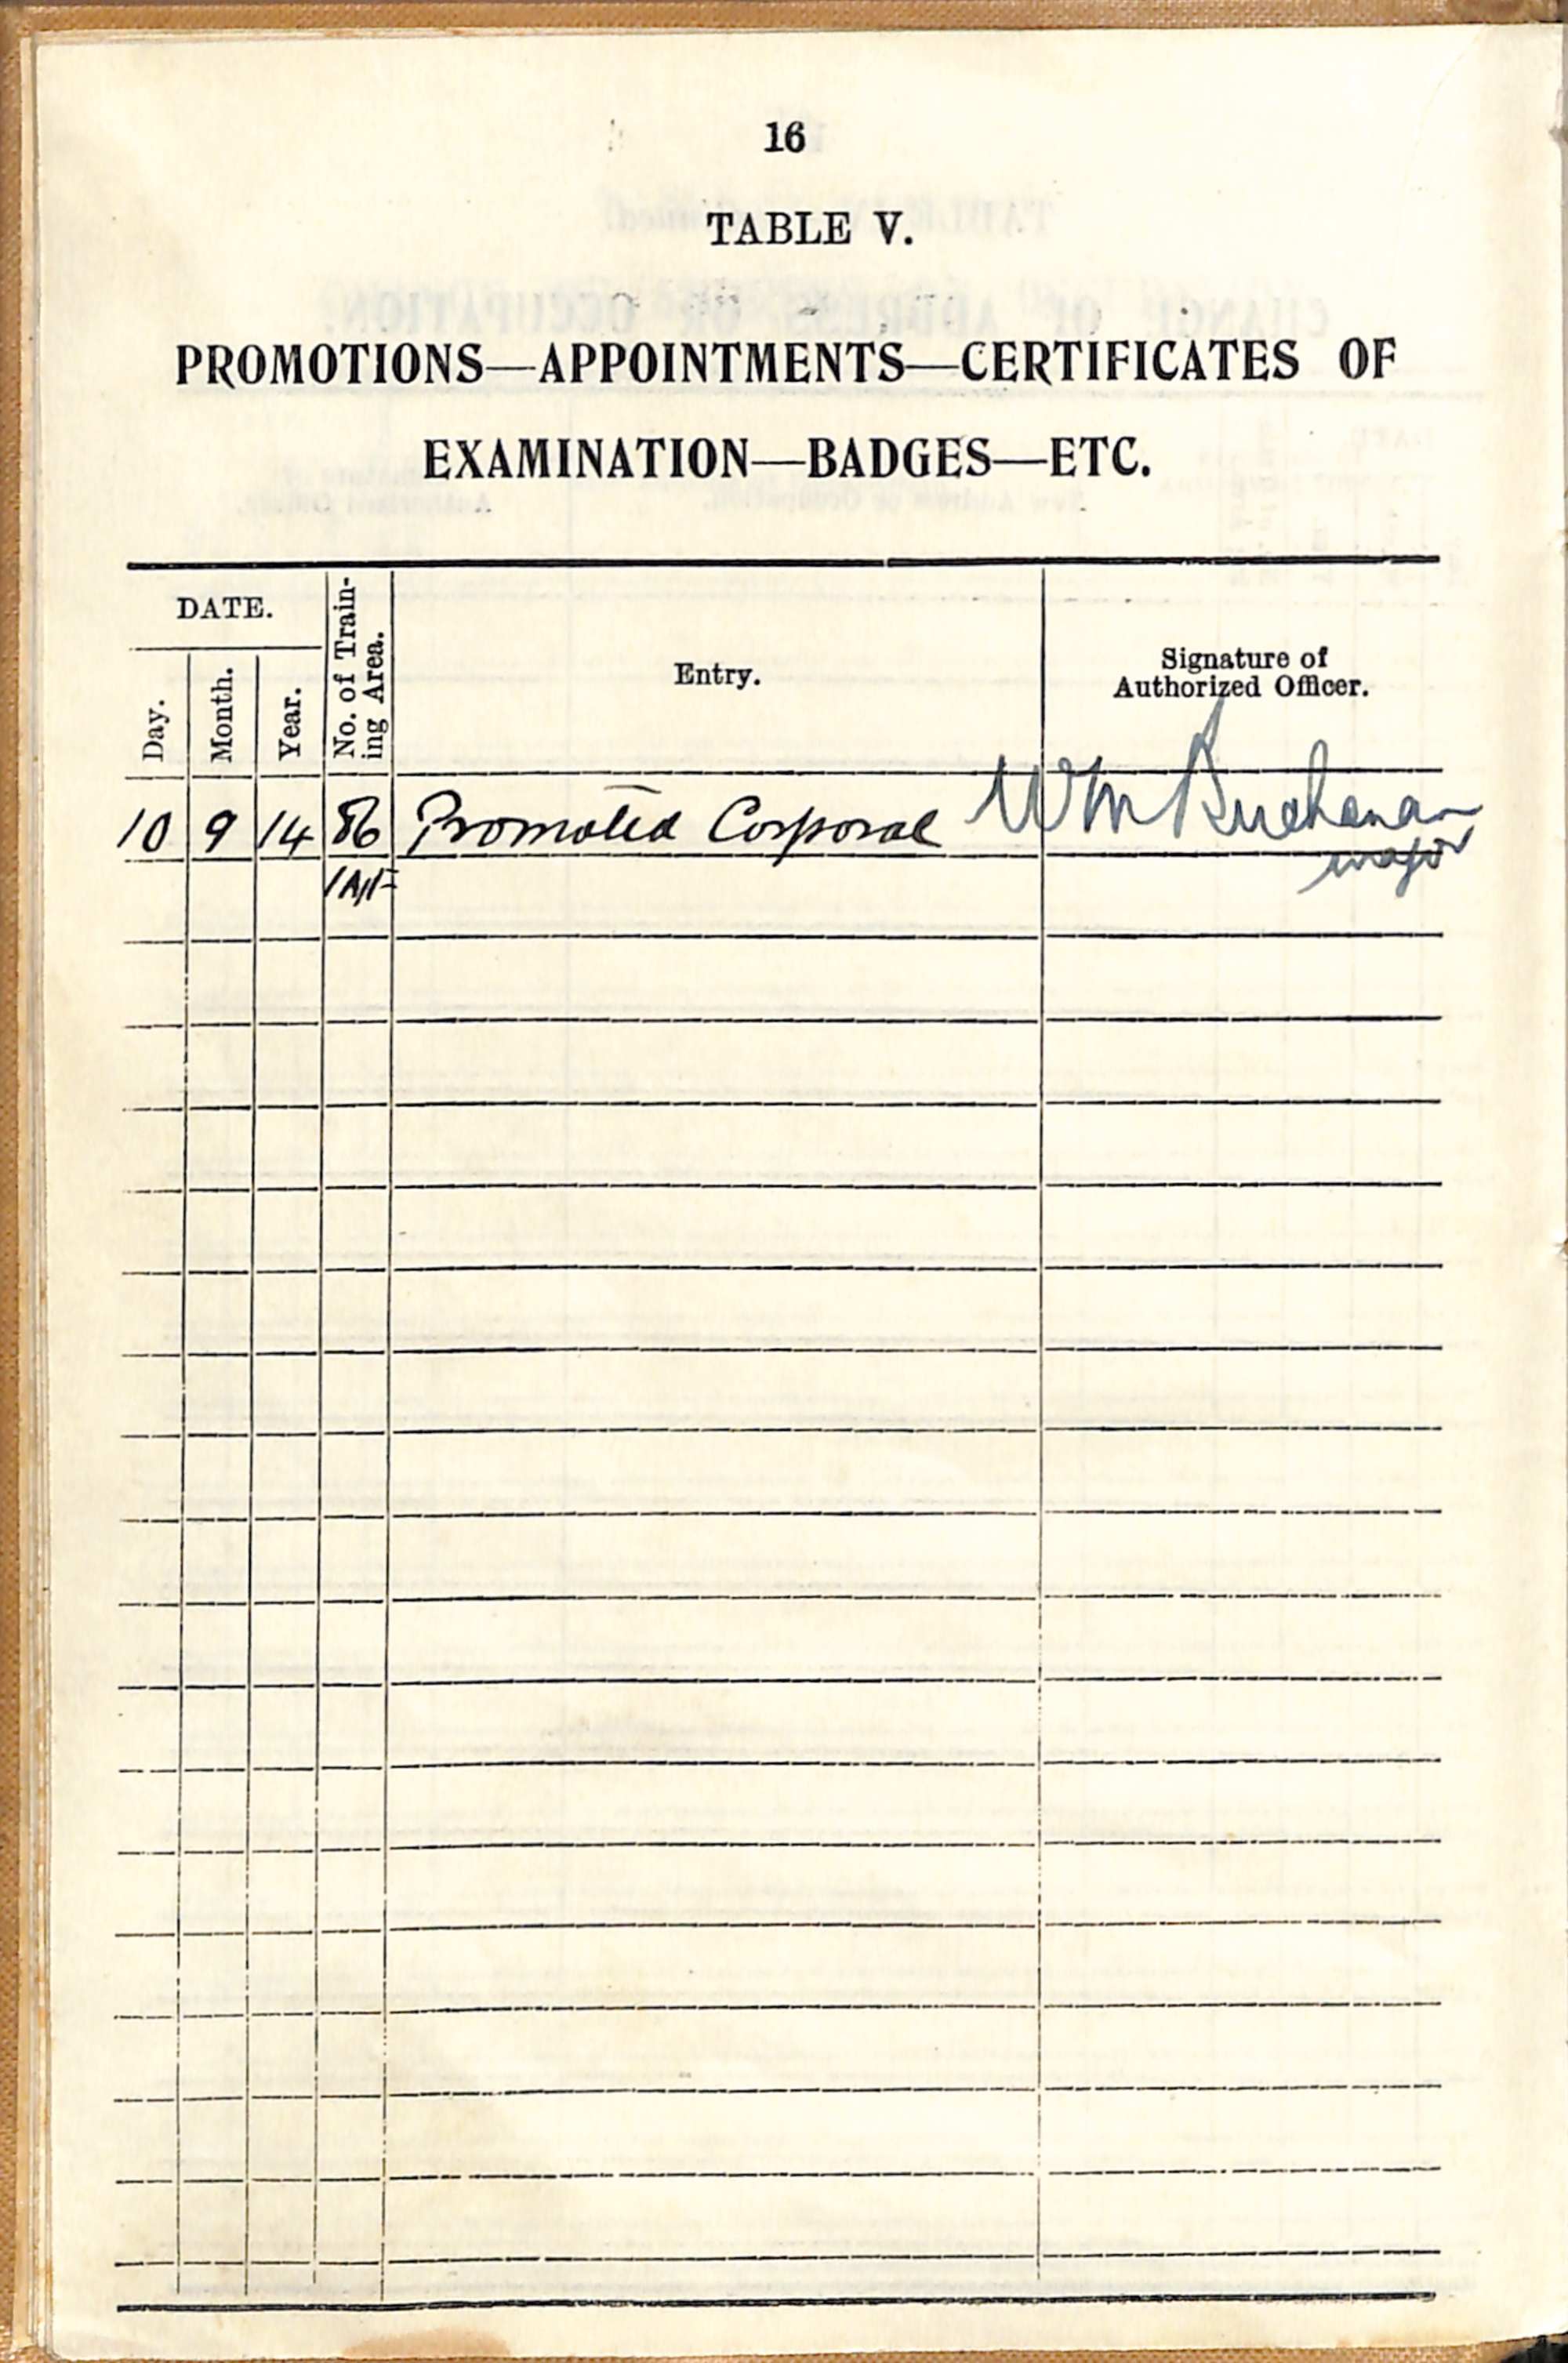 16
TABLE V.
PROMOTIONS—APPOINTMENTS—CERTIFICATES OF
EXAMINATION—BADGES—ETC.
DATE.
Day.
Month.
Year.
No. of Train-
ing Area.
Entry.
Signature of
Authorized Officer.
10 9 14 86 Promoted Corporal Wm Buchanan
major